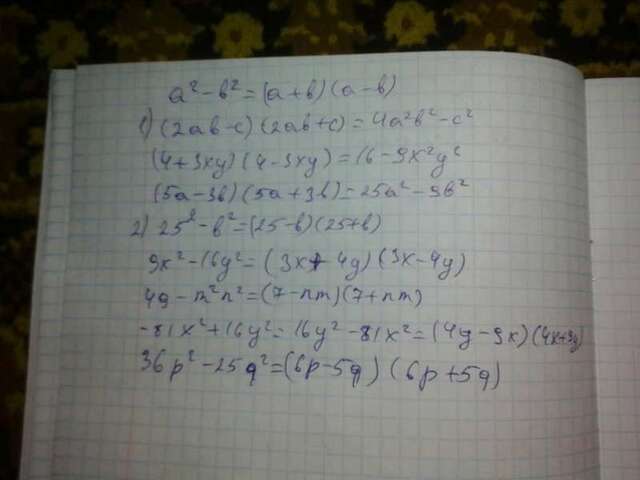 a² - b² = (a + b)(a - b)
1) (2ab - c)(2ab + c) = 4a²b² - c²
(4 + 3xy)(4 - 3xy) = 16 - 9x²y²
(5a - 3b)(5a + 3b) = 25a² - 9b²
2) 25² - b² = (25 - b)(25 + b)
9x² - 16y² = (3x + 4y)(3x - 4y)
49 - m²n² = (7 - nm)(7 + nm)
-81x² + 16y² = 16y² - 81x² = (4y - 9x)(4x + 9y)
36p² - 25q² = (6p - 5q)(6p + 5q)